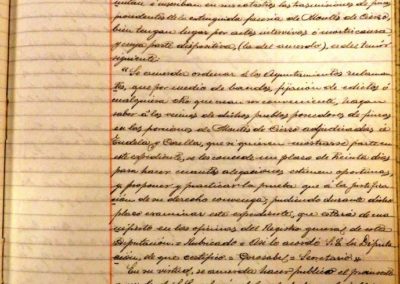 cutan é inscriban en sus catastros las trasmisiones de fincas
procedentes de la extinguida facería de Montes de Cierzo,
bien tengan lugar por actos intervivos ó mortis causa,
y cuya parte dispositiva, (la del acuerdo), es del tenor
siguiente:
"Se acuerda ordenar á los Ayuntamientos reclaman-
tes, que por medio de bandos, fijación de edictos ó
cualquiera otro que sea conveniente, hagan
saber á los vecinos de dichos pueblos poseedores de fincas
en las porciones de Montes de Cierzo adjudicadas á
Tudela y Corella, que si quieren mostrarse parte en
este expediente, se les concede un plazo de treinta días
para hacer cuantas alegaciones estimen oportunas,
y proponer y practicar la prueba que á la justifica-
ción de su derecho convenga, pudiendo durante dicho
plazo examinar este expediente, que estará de ma-
nifiesto en las oficinas del Registro general de esta
Diputación = Rubricado = Así lo acordó S.E. la Diputa-
ción, de que certifico = Secretario =
En su virtud, se acuerda hacer público el